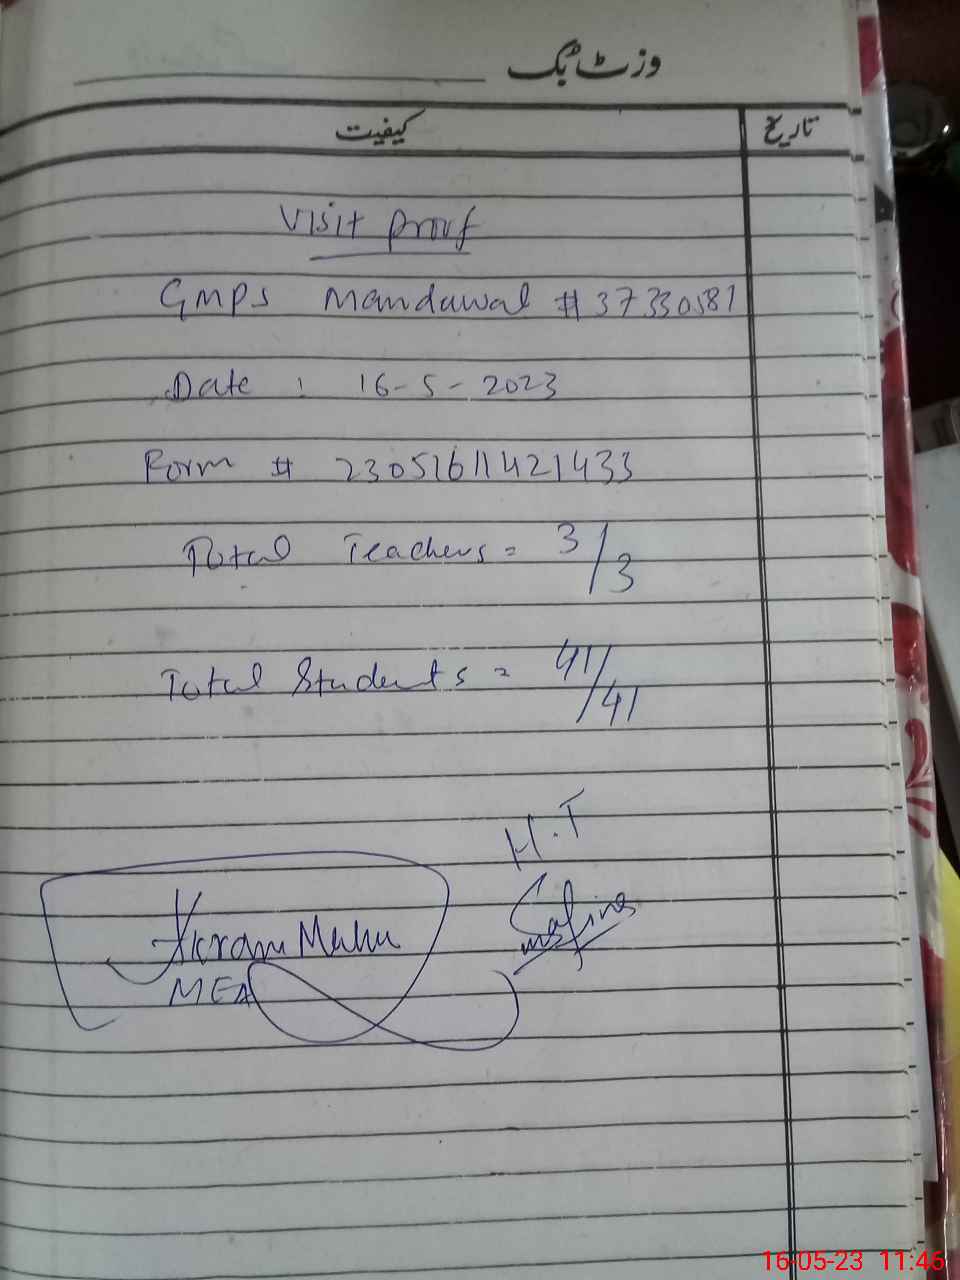 وزٹ بک
کیفیت تاریخ
Visit Proof
GMPS Mandawal # 37330581
Date : 16-5-2023
Form # 23051611421433
Total Teachers = 3/3
Total Students = 41/41
H.T
Safina
Akram
MEA
16-05-23 11:46